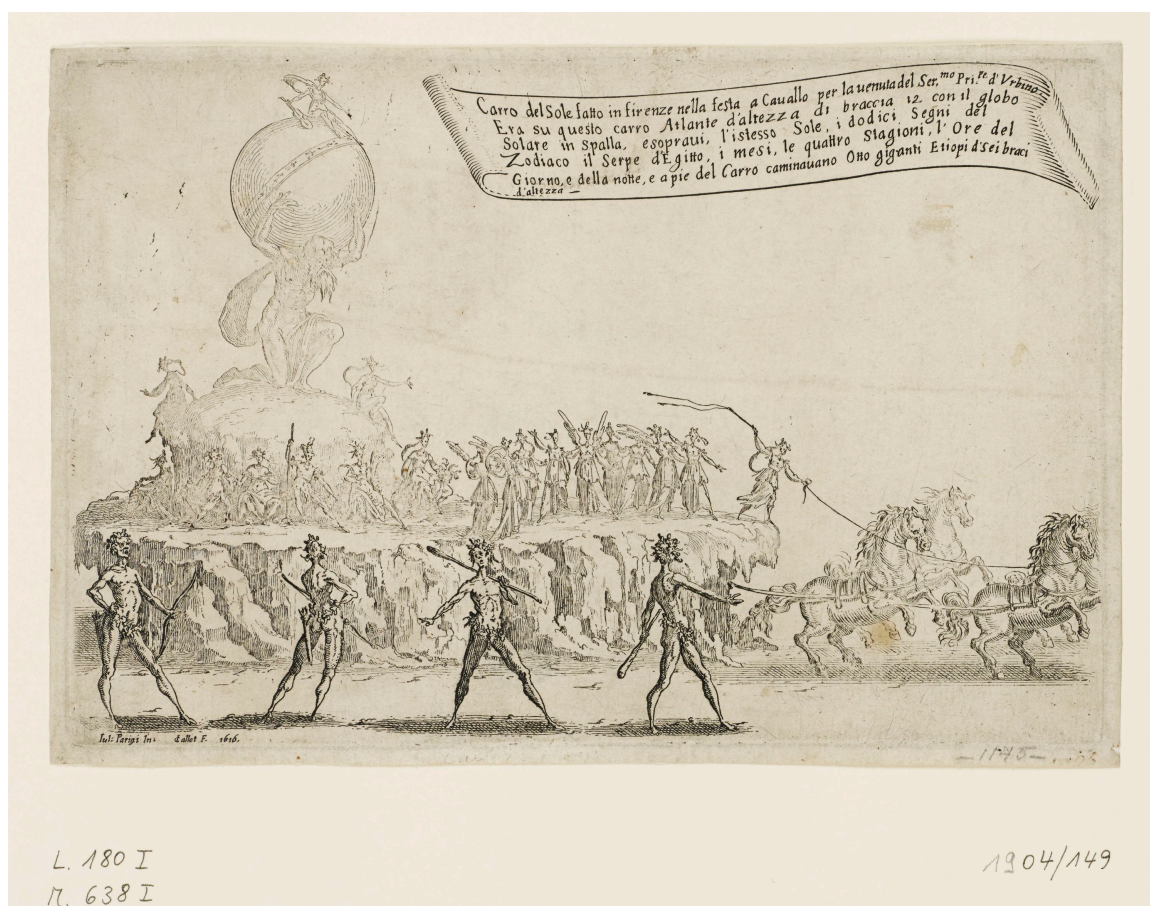 Carro del Sole fatto in firenze nella festa a Cauallo per la uenuta del Ser.mo Pri.pe d'Vrbino.
Era su questo carro Atlante d'altezza di braccia 12 con il globo
Solare in Spalla, esopraui, l'istesso Sole, i dodici Segni del
Zodiaco il Serpe d'Egitto, i mesi, le quattro Stagioni, l'Ore del
Giorno, e della notte, e a pie del Carro caminauano Otto giganti Etiopi d'sei braci
d'altezza
Iul: Parigi In: Callot F. 1616.
-1145-
L. 180 I
M. 638 I
1904/149